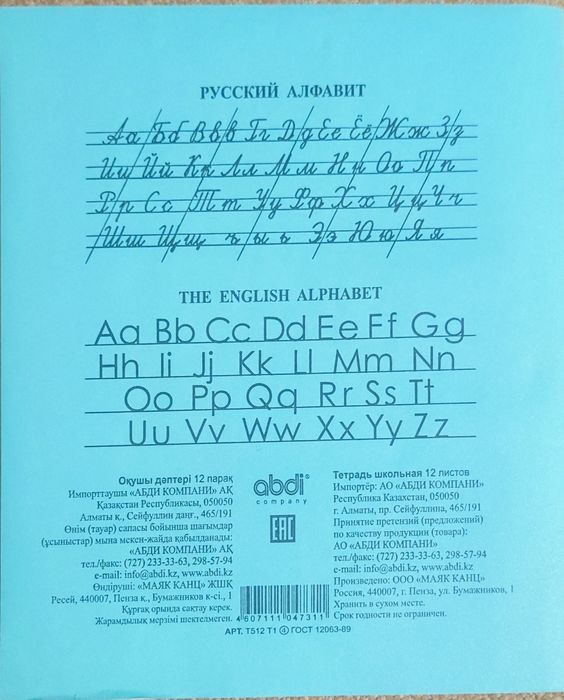 РУССКИЙ АЛФАВИТ
Аа Бб Вв Гг Дд Ее Ёё Жж Зз
Ии Йй Кк Лл Мм Нн Оо Пп
Рр Сс Тт Уу Фф Хх Цц Чч
Шш Щщ ъ ы ь Ээ Юю Яя
THE ENGLISH ALPHABET
Aa Bb Cc Dd Ee Ff Gg
Hh Ii Jj Kk Ll Mm Nn
Oo Pp Qq Rr Ss Tt
Uu Vv Ww Xx Yy Zz
Оқушы дәптері 12 парақ
Импорттаушы «АБДИ КОМПАНИ» АҚ
Қазақстан Республикасы, 050050
Алматы қ., Сейфуллин даңғ., 465/191
Өнім (тауар) сапасы бойынша шағымдар
(ұсыныстар) мына мекен-жайда қабылданады:
«АБДИ КОМПАНИ» АҚ
тел./факс: (727) 233-33-63, 298-57-94
e-mail: info@abdi.kz, www.abdi.kz
Өндіруші: «МАЯК КАНЦ» ЖШҚ
Ресей, 440007, Пенза қ., Бумажников к-сі., 1
Құрғақ орында сақтау керек.
Жарамдылық мерзімі шектелмеген.
abdi®
company
EAC
4 607111 047311
АРТ. Т512 Т1 4 ГОСТ 12063-89
Тетрадь школьная 12 листов
Импортёр: АО «АБДИ КОМПАНИ»
Республика Казахстан, 050050
г. Алматы, пр. Сейфуллина, 465/191
Принятие претензий (предложений)
по качеству продукции (товара):
АО «АБДИ КОМПАНИ»
тел./факс: (727) 233-33-63, 298-57-94
e-mail: info@abdi.kz, www.abdi.kz
Произведено: ООО «МАЯК КАНЦ»
Россия, 440007, г. Пенза, ул. Бумажников, 1
Хранить в сухом месте.
Срок годности не ограничен.